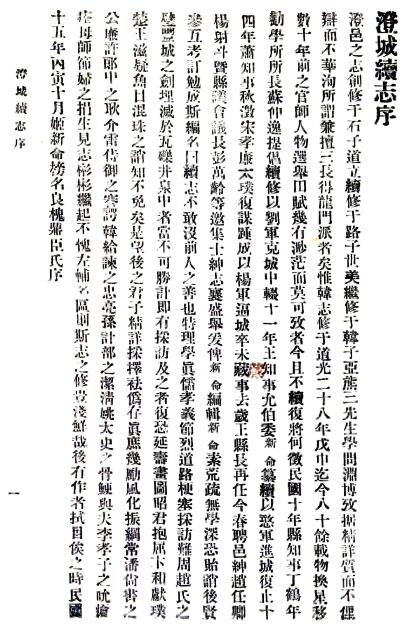 澄城續志序
澄邑之志創修于石子道立續修于路子世美繼修于韓子亞熊三先生學問淵博攷据精詳質而不俚
辯而不華洵所謂兼擅三長得龍門派者矣惟韓志修于道光二十八年戊申迄今八十餘載物換星移
數十年前之官師人物選舉田賦幾有渺茫而莫可攷者今且不續復將何徵民國十年縣知事丁鶴年
勸學所所長蘇仲逸提倡續修以劉軍克城中輟十一年王知事允伯委新命纂續以憨軍進城復止十
四年蕭知事秋濤宋孝廉太璞復謀踵成以楊軍逼城卒未蕆事去歲王縣長再任今春聘邑紳趙任卿
楊射斗暨縣議會議長彭萬齡等邀集士紳志襄盛舉爰俾新命編輯新命素荒疏無學深恐貽誚後賢
參互考訂勉成斯編名曰續志不敢沒前人之善也特理學眞儒孝義節烈道路梗塞採訪難周趙氏之
璧豐城之劍埋滅於瓦礫井泉中者當不可勝計即有採訪及之者復恐延壽畫圖昭君抱屈卞和獻璞
楚王滋疑魚目混珠之誚知不免矣是望後之君子精詳採擇袪僞存眞庶幾勵風化振綱常潘尙書之
公廉許郎中之耿介雷侍御之謇諤韓給諫之忠亮孫計部之潔清姚太史之骨鯁與夫李孝子之吮瘡
母師節婦之捐生見志彬彬繼起不愧左輔名區則斯志之修豈淺鮮哉後有作者拭目俟之時民國
十五年丙寅十月姬新命榜名良槐鼎臣氏序
澄城續志序
一